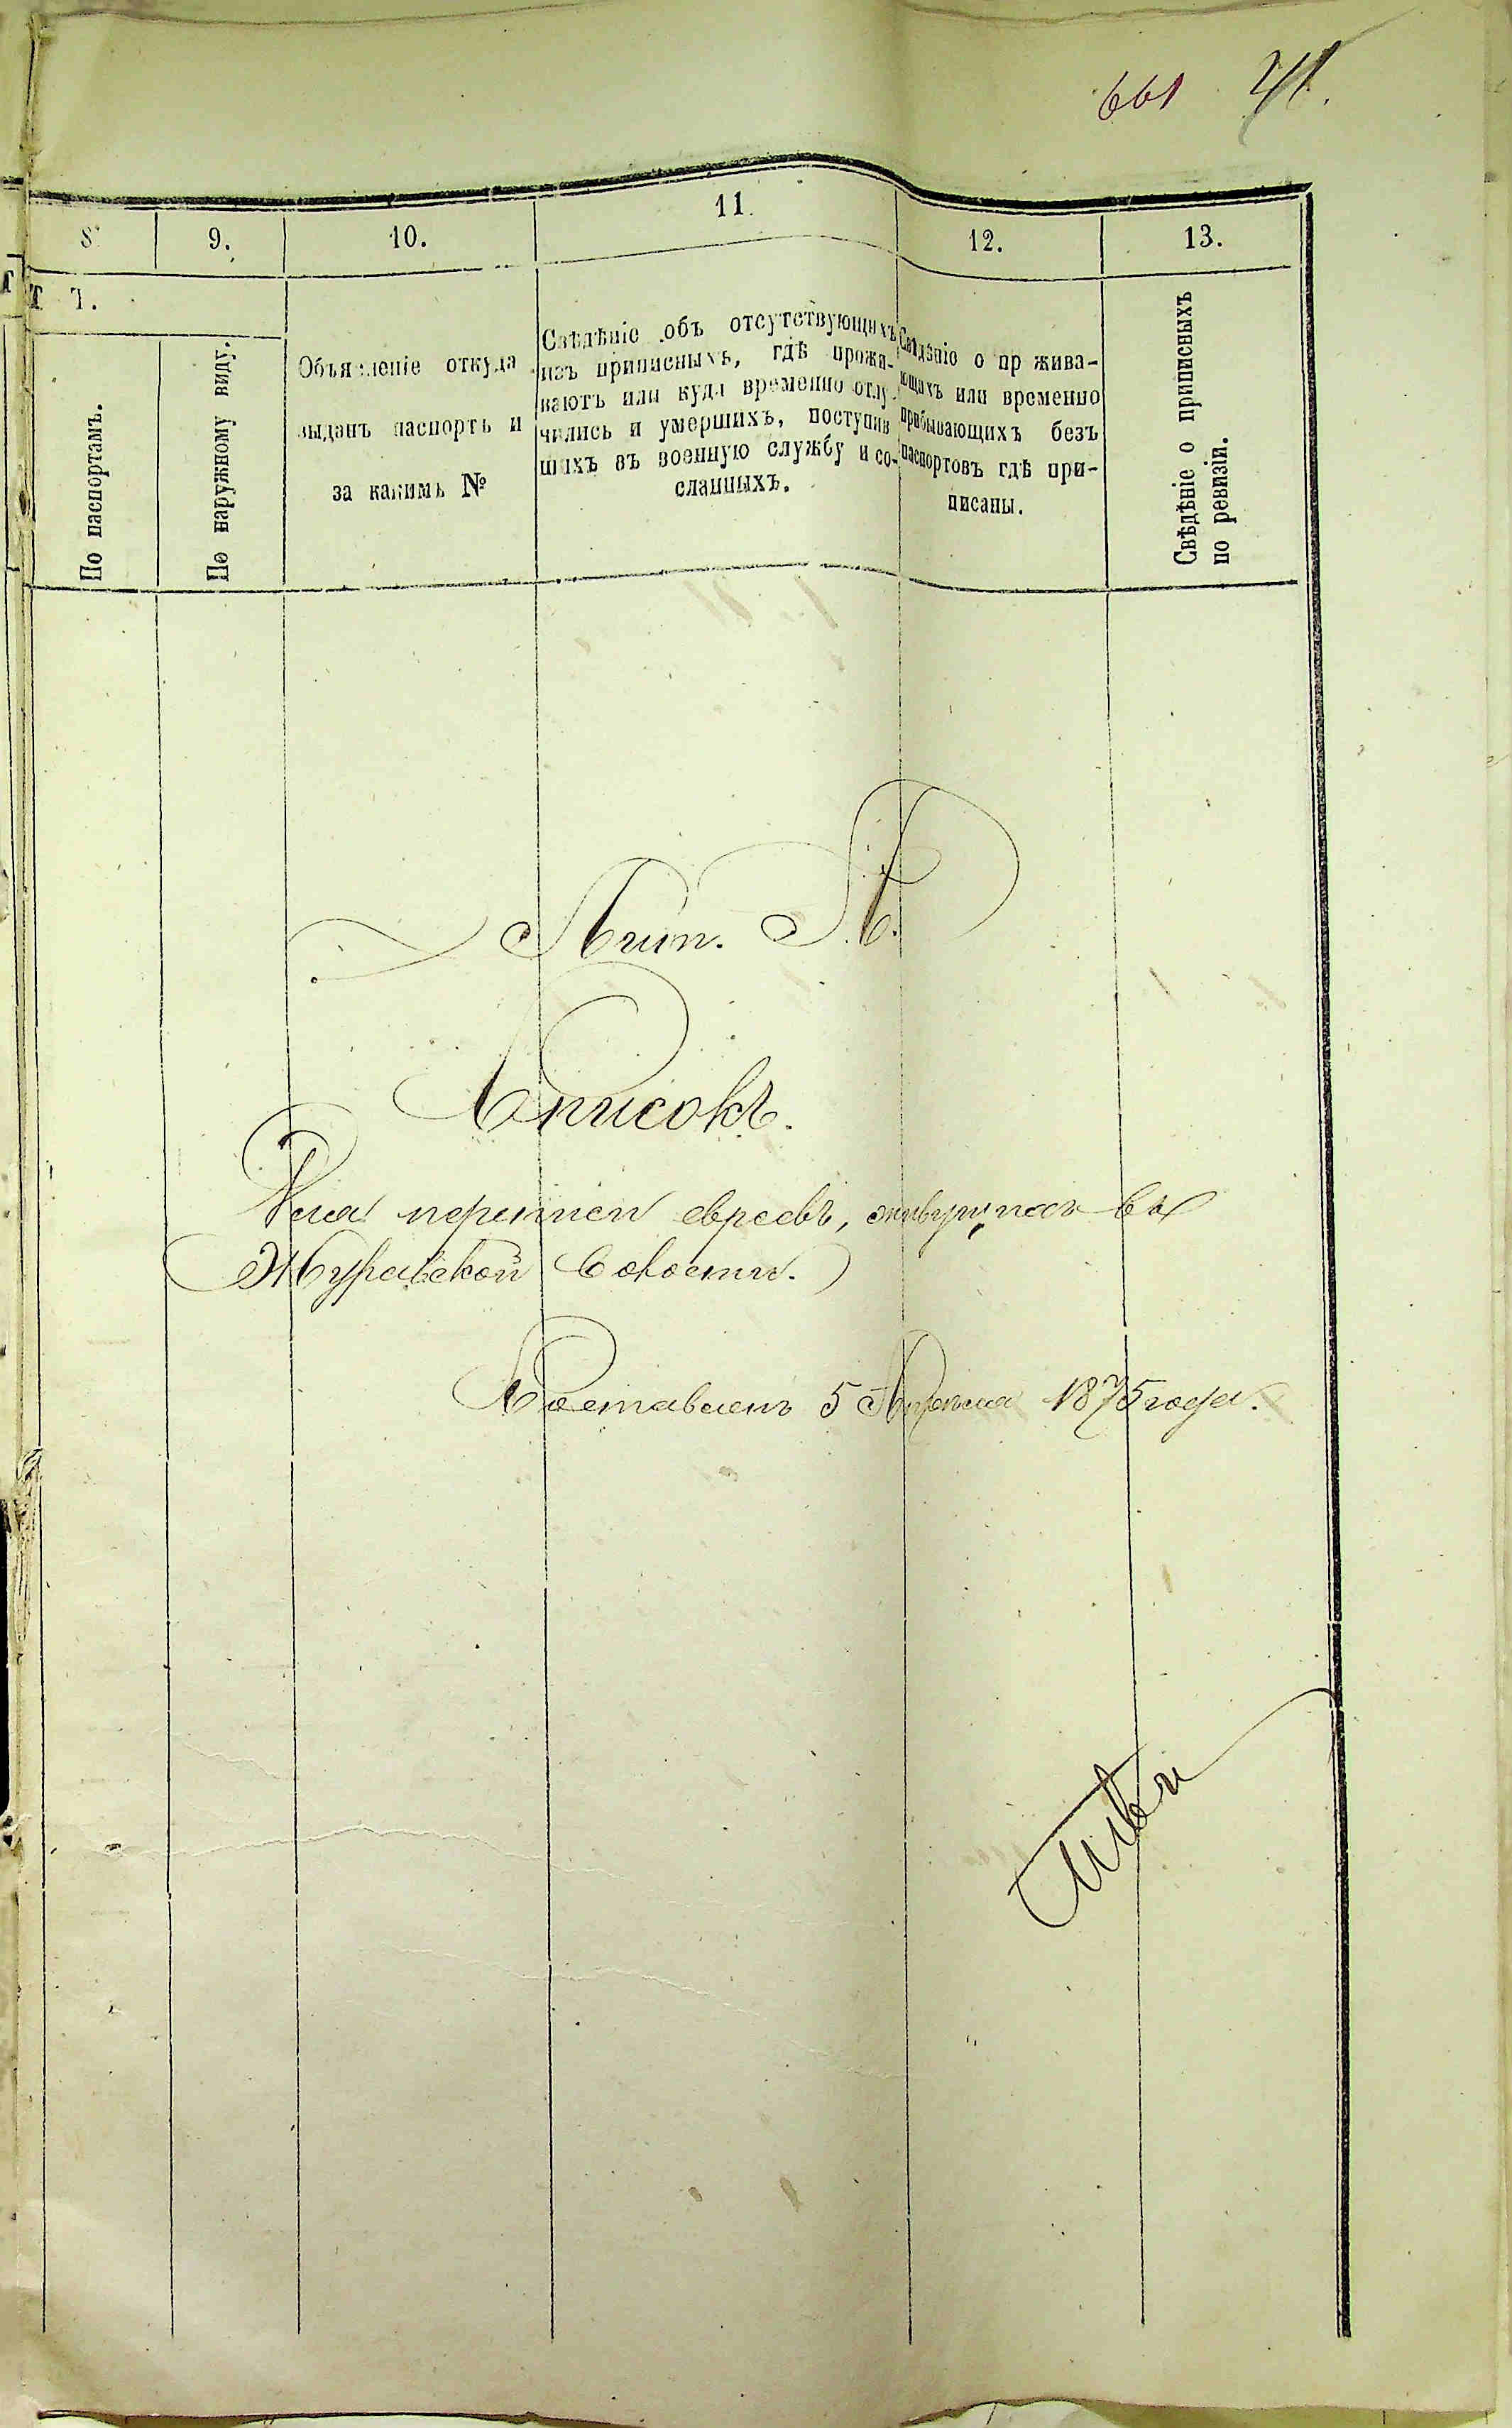 661 41.
8. 9. 10. 11. 12. 13.
Т Ъ.
По паспортамъ.
По наружному виду.
Объявленіе откуда
выданъ паспортъ и
за какимъ №
Свѣдѣніе объ отсутствующихъ
изъ приписныхъ, гдѣ прожи-
ваютъ или куда временно отлу-
чились и умершихъ, поступив
шихъ въ военную службу и со-
сланныхъ.
Свѣдѣніо о пр жива-
ющихъ или временно
прибывающихъ безъ
паспортовъ гдѣ при-
писаны.
Свѣдѣніе о приписныхъ
по ревизіи.
Лит. А.
Списокъ.
Для переписи евреевъ, живущихъ въ
Журавской волости.
Составленъ 5 Апрѣля 1875 года.